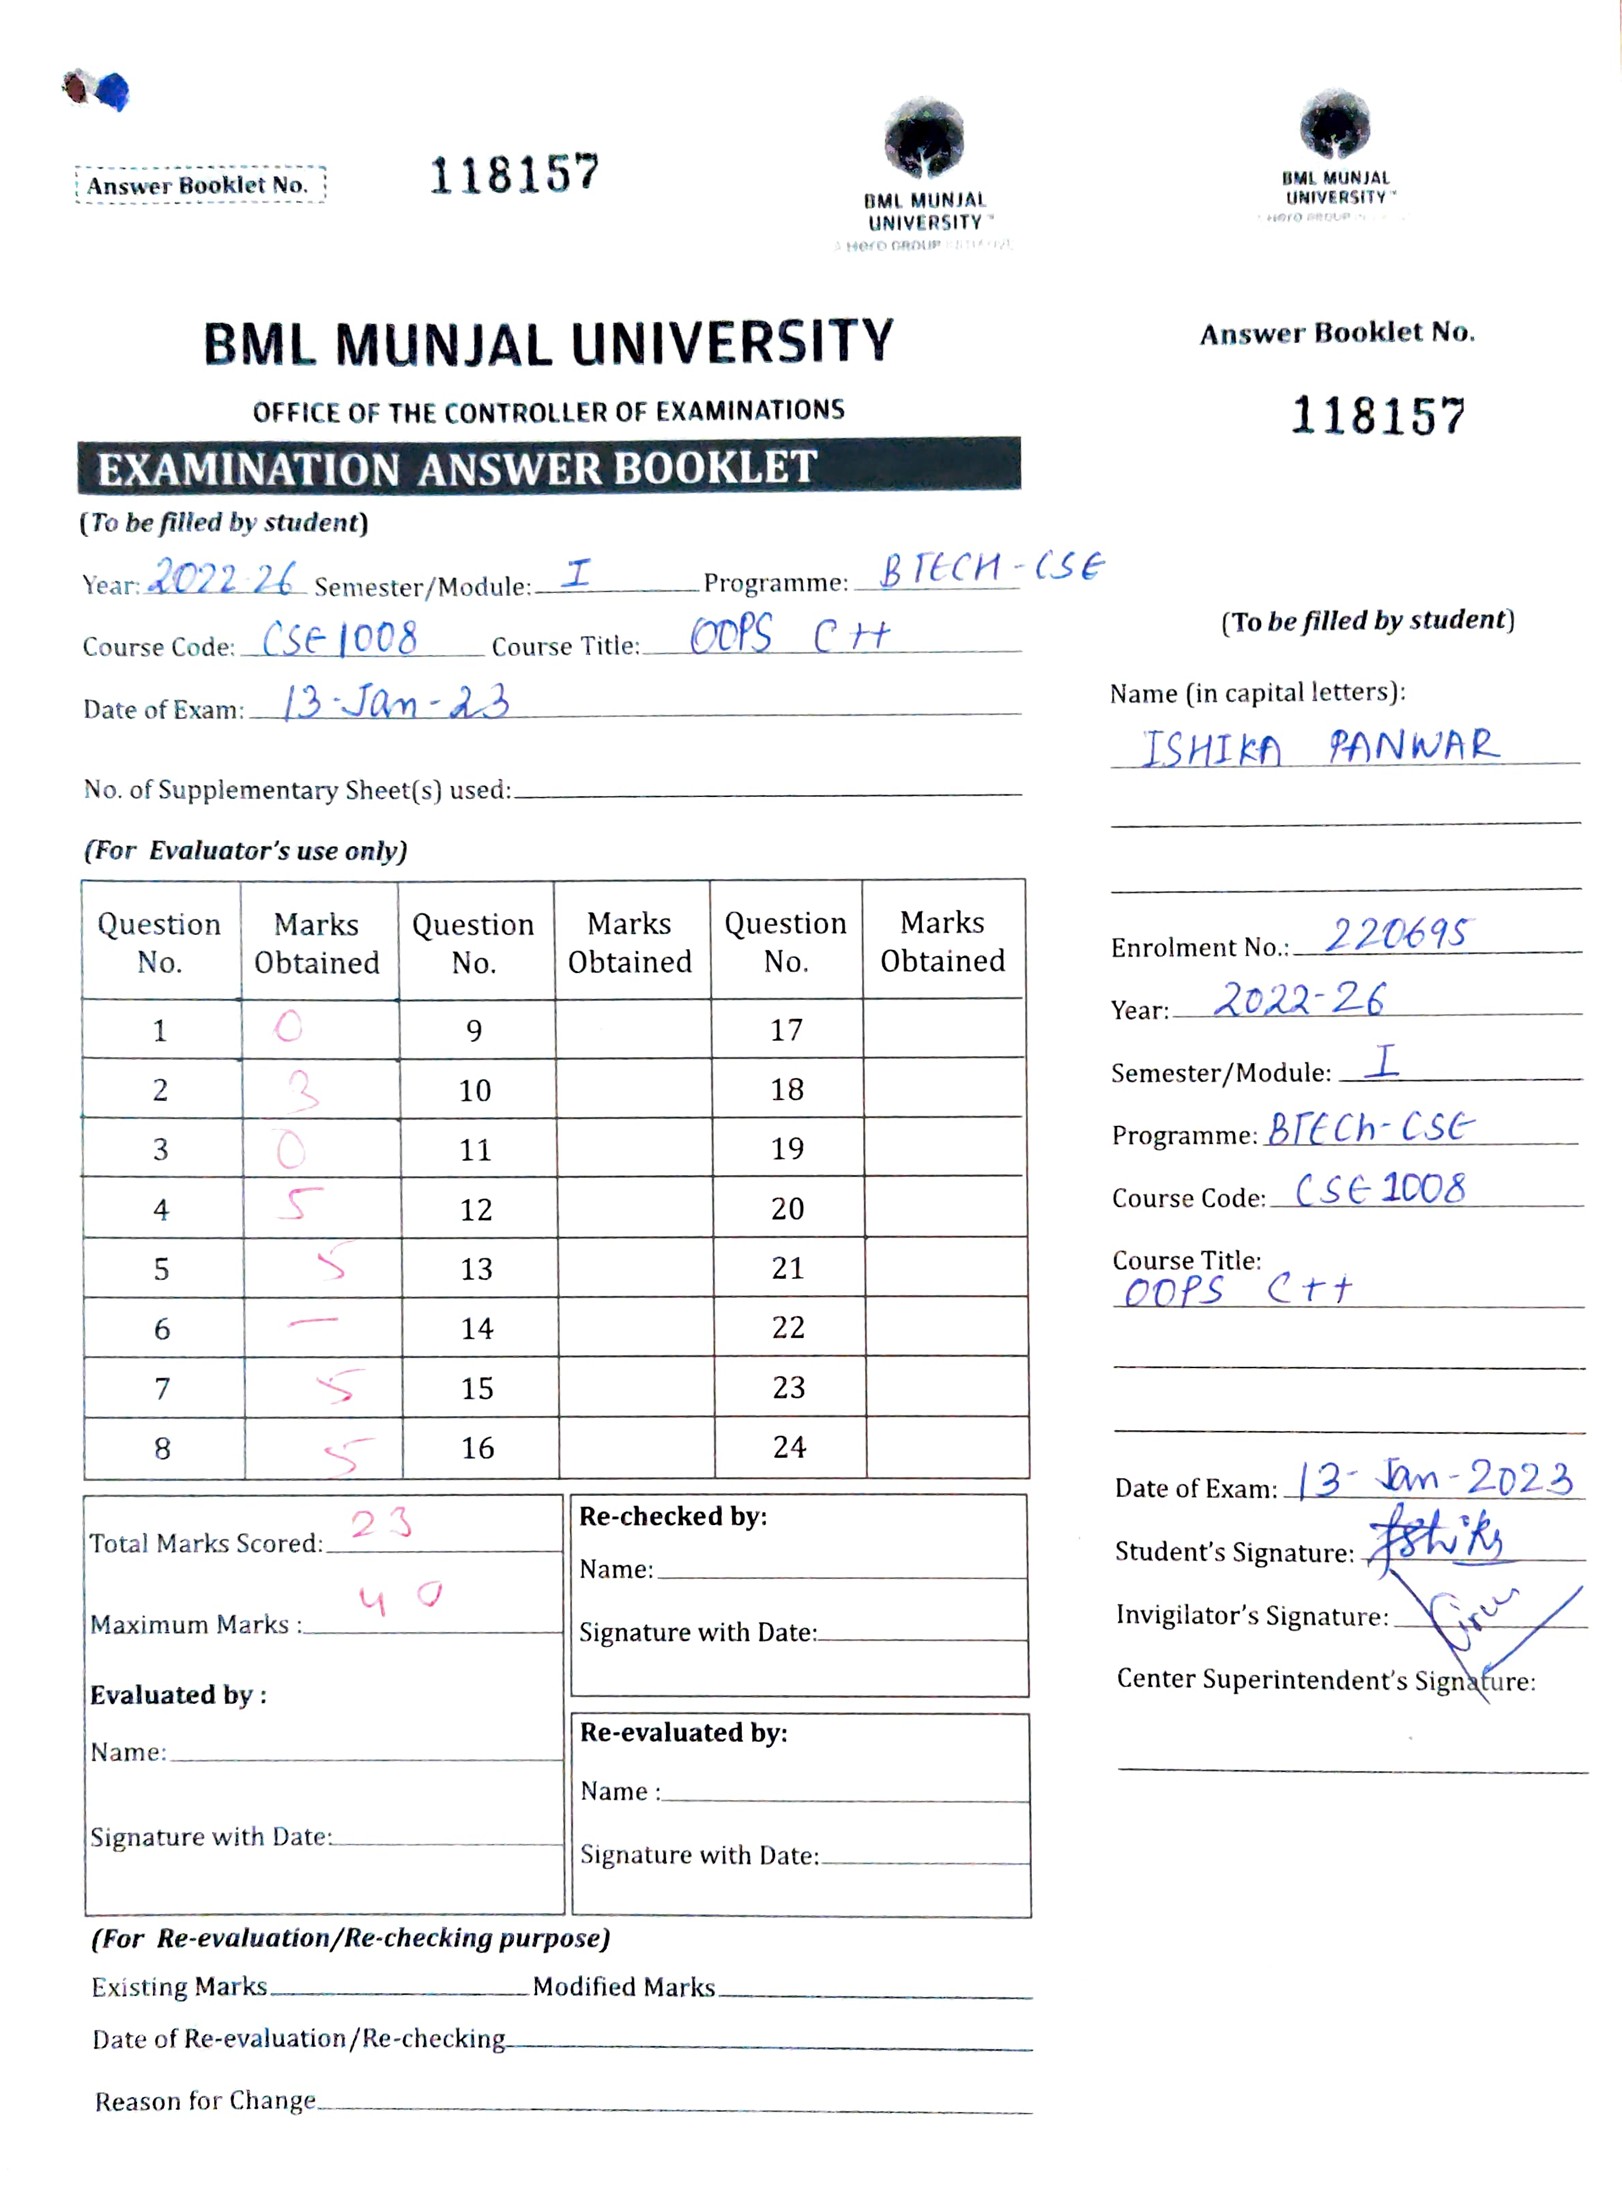 Answer Booklet No.
118157
BML MUNJAL
UNIVERSITY™
A Hero GROUP
BML MUNJAL UNIVERSITY
OFFICE OF THE CONTROLLER OF EXAMINATIONS
EXAMINATION ANSWER BOOKLET
(To be filled by student)
Year: 2022-26 Semester/Module: I Programme: BTECH-CSE
Course Code: CSE1008 Course Title: OOPS C++
Date of Exam: 13-Jan-23
No. of Supplementary Sheet(s) used:
(For Evaluator's use only)
Question No. Marks Obtained Question No. Marks Obtained Question No. Marks Obtained
1 0 9 17
2 3 10 18
3 0 11 19
4 5 12 20
5 5 13 21
6 — 14 22
7 5 15 23
8 5 16 24
Total Marks Scored: 23
Maximum Marks : 40
Evaluated by :
Name:
Signature with Date:
Re-checked by:
Name:
Signature with Date:
Re-evaluated by:
Name :
Signature with Date:
(For Re-evaluation/Re-checking purpose)
Existing Marks Modified Marks
Date of Re-evaluation/Re-checking
Reason for Change
BML MUNJAL
UNIVERSITY™
A Hero GROUP
Answer Booklet No.
118157
(To be filled by student)
Name (in capital letters):
ISHIKA PANWAR
Enrolment No.: 220695
Year: 2022-26
Semester/Module: I
Programme: BTECh-CSE
Course Code: CSE1008
Course Title:
OOPS C++
Date of Exam: 13-Jan-2023
Student's Signature: Ishika
Invigilator's Signature:
Center Superintendent's Signature: